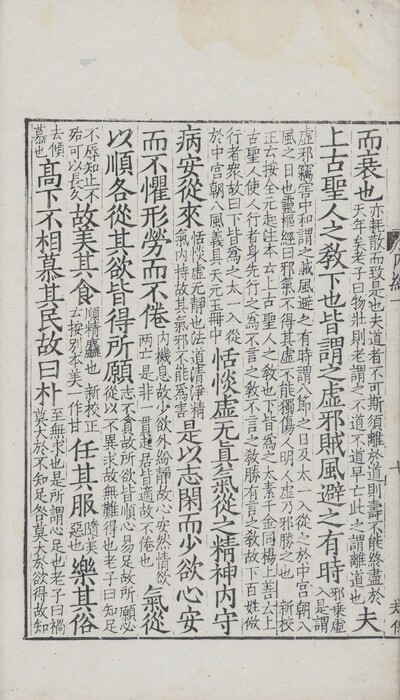 而衰也亦耗散而致是也夫道者不可斯須離於道則壽不能終盡於天年矣老子曰物壯則老謂之不道不道早亡此之謂離道也夫
上古聖人之教下也皆謂之虛邪賊風避之有時邪乘虛入是謂
虛邪竊害中和謂之賊風避之有時謂八節之日及太一入從之於中宮朝八
風之日也靈樞經曰邪氣不得其虛不能獨傷人明人虛乃邪勝之也 新校
正云按全元起注本云上古聖人之教也下皆為之太素千金同楊上善云上
古聖人使人行者身先行之為不言之教不言之教勝有言之教故下百姓倣
行者衆故曰下皆為之太一入從於中宮朝八風義具天元玉冊中恬惔虛无真氣從之精神内守
病安從來恬惔虛无靜也法道清淨精氣内持故其氣邪不能為害是以志閑而少欲心安
而不懼形勞而不倦内機息故少欲外紛靜故心安然情欲兩亡是非一貫起居皆適故不倦也氣從
以順各從其欲皆得所願志不貪故所欲皆順心易足故所願必從以不異求故無難得也老子曰知足
不辱知止不殆可以長久故美其食順精麤也 新校正云按别本美一作甘任其服隨美惡也樂其俗
去傾慕也高下不相慕其民故曰朴至無求也是所謂心足也老子曰禍莫大於不知足咎莫大於欲得故知